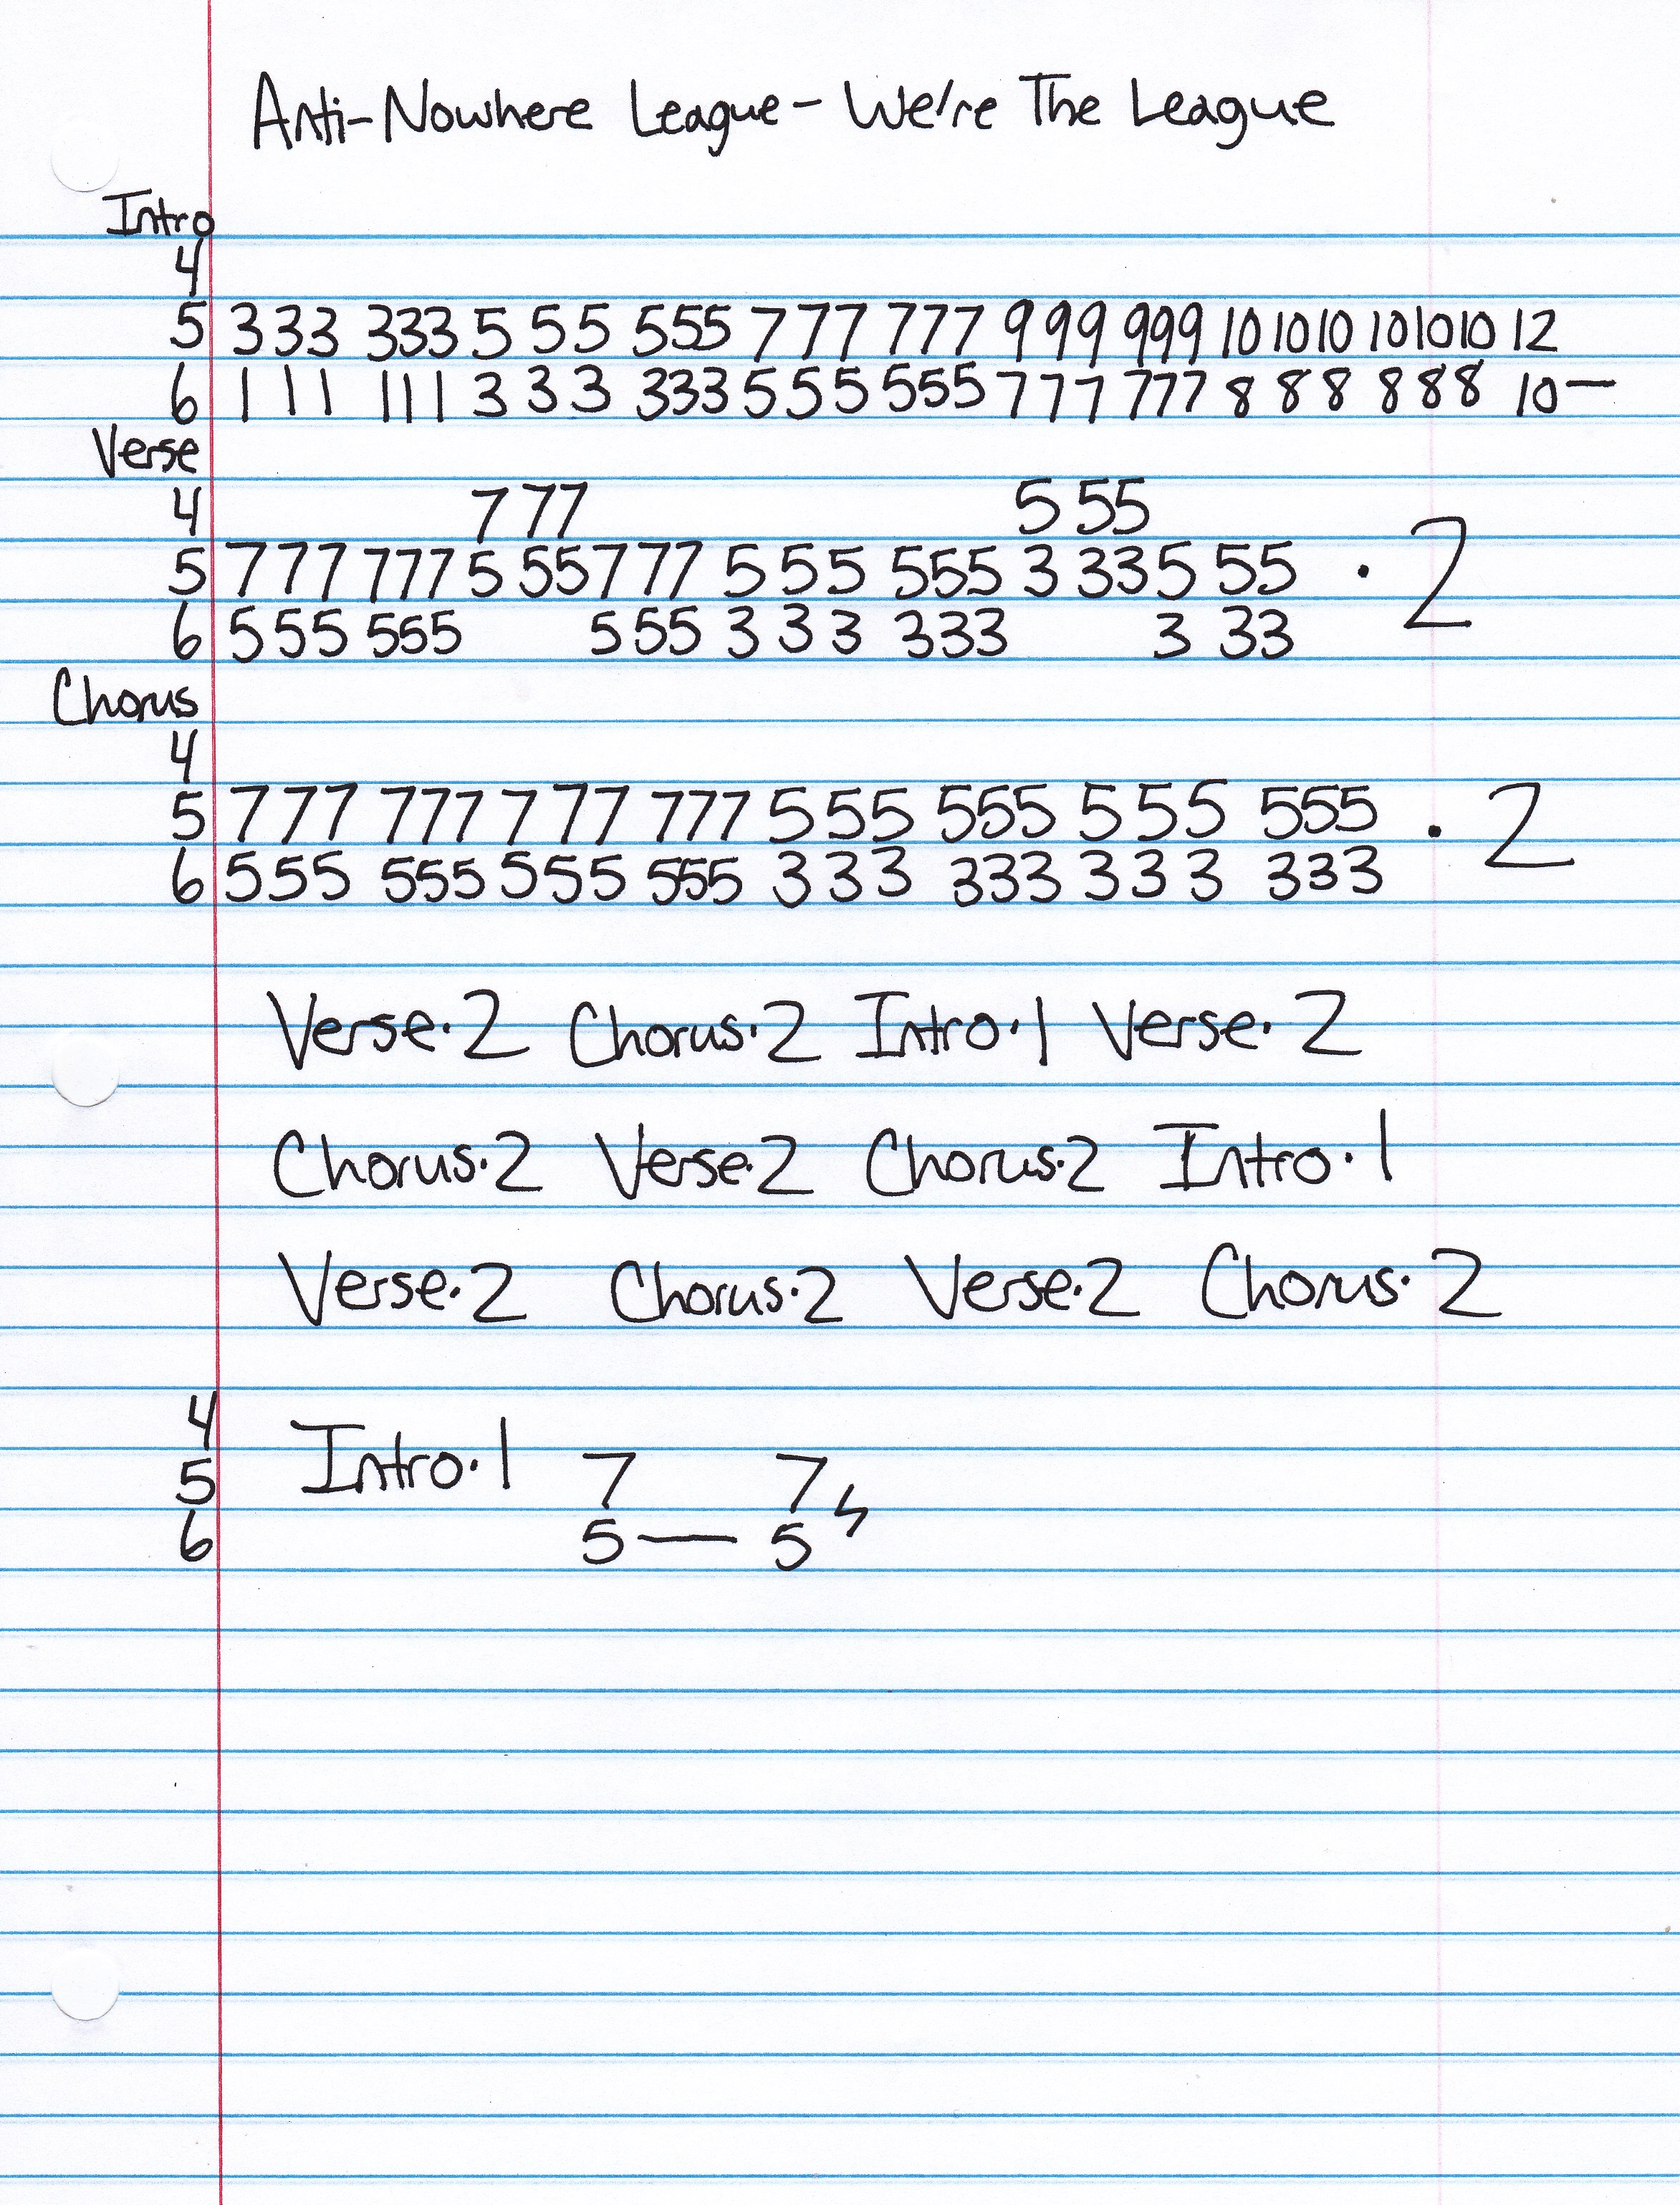 Anti-Nowhere League - We're The League
Intro
4
5 3 33 333 5 55 555 7 77 777 9 99 999 10 1010 101010 12
6 1 11 111 3 33 333 5 55 555 7 77 777 8 88 888 10—
Verse
4 7 77 5 55
5 777 777 5 55 777 555 555 3 33 5 55 · 2
6 555 555 5 55 333 333 3 33
Chorus
4
5 777 777 7 77 777 555 555 555 555 · 2
6 555 555 555 555 333 333 333 333
Verse·2 Chorus·2 Intro·1 Verse·2
Chorus·2 Verse·2 Chorus·2 Intro·1
Verse·2 Chorus·2 Verse·2 Chorus·2
4
5 Intro·1 7 7
6 5 — 5